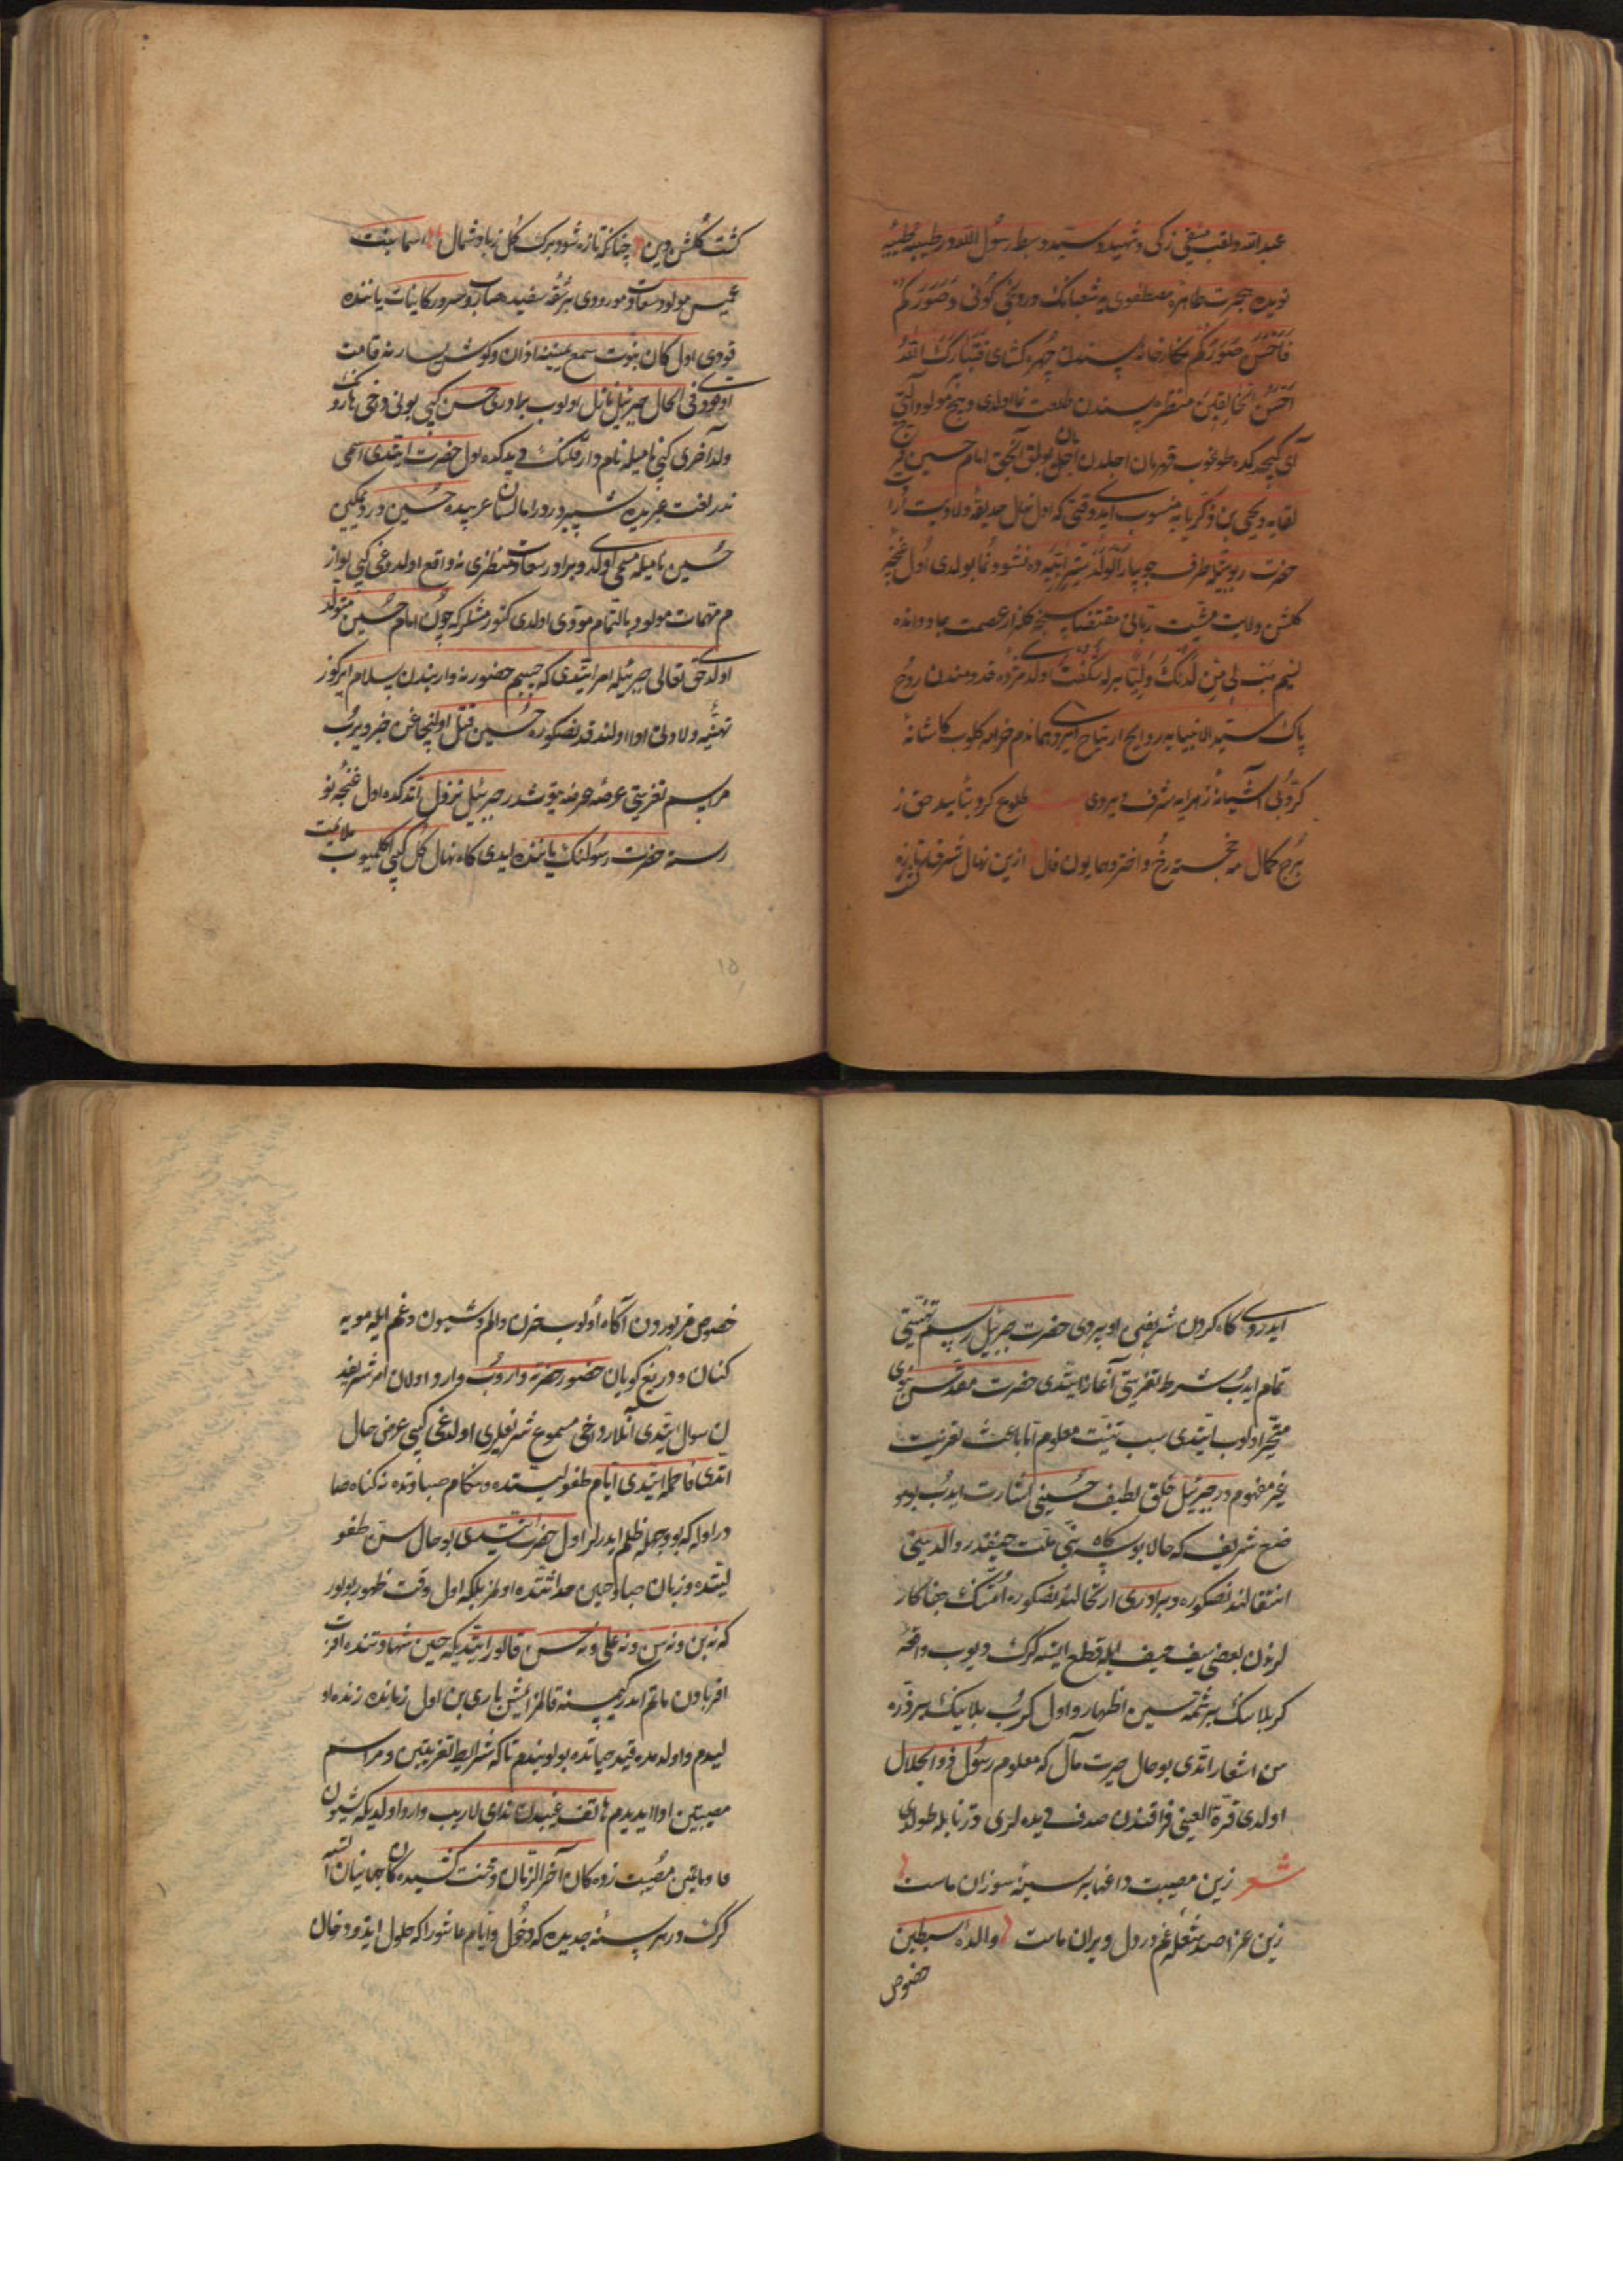 عبدالله و لقب متقی زکی و شهید و سید و سبط رسول الله در طیبه طیبه
هجرت طاهره مصطفوی شعبانک
فاحسن صورکم نکارخانه سندن چهره کشای فتبارک الله
احسن الخالقین منظره سندن طلعت نما اولدی و هیچ مولود
آی کیچه کده طوغوب قهرمان اجلدن امان بولق آنجق امام حسین
لقایه و یحیی بن زکریایه منسوب ایدی وقتی که اول نهال حدیقه ولایت
حضرت طرف جویبار الولد سر ابیه ده نشو و نما بولدی اول غنچه
کلشن ولایت مشیت ربانی کلزار عصمت جاودانده
نسیم هب لی من لدنک ولیا برله شکفت اولدی مژده قدومندن روح
پاک سید الانبیایه روایح ارتیاح ایردی هماندم کلوب کاشانه
کروبی آشیانه زهرایه شرف ویردی بیت طلوع کرد بتأیید حق ز
برج کمال مه خجسته رخ و اختر همایون فال ازین نهال شرف تازه
کشت کلشن دین چنانکه تازه شود برک کل ز باد شمال اسما بنت
عمیس مولود سعادت مورودی بر شقه سفیده صاروب سرور کاینات یاننده
قودی اول کان نبوت سمع یمینینه اذان و کوش یسارینه قامت
اوقودی فی الحال جبرئیل نازل اولوب برادری حسن کبی بونی دخی هارونک
ولد آخری کبی نامیله نام دار قلنک دیدکده اول حضرت ایتدی اسمی
ندر لغت عبریده شبیر در اما لسان عربیده حسین در دیمکین
حسین نامیله مسمی اولدی و برادر سعادت منظری نه واقع اولدوغی کبی لوازم
م مهمات مولود بالتمام مؤدی اولدی کنور مشلر که چون امام حسین متولد
اولدی حق تعالی جبرئیله امر ایتدی که حبیبم حضورنه وار بندن سلام ایرکوز
تهنیه ولادتی ادا اولندقدنصکوره حسین قتل اولنیجاغن خبر ویروب
مراسم تعزیتی عرضه عرضه یتوشدر جبرئیل نزول اتدکده اول غنچه نو
رسته حضرت رسولنک یاننده ایدی کاه نهال کل کبی اکلیوب ملایمت
ایدردی کاه کردن شریفنی اوپردی حضرت جبرئیل رسم تهنیتی
تمام ایدوب شرط تعزیتی آغاز ایتدی حضرت مقدس نبوی
متحیر اولوب ایتدی سبب تهنیت معلوم اما باعث تعزیت
غیر مفهوم در جبرئیل خلق لطیف حسینی اشارت ایدوب بو مو
ضع شریف که حالا بوسه کاه نبی ملت حنیفدر والدینی
انتقالندنصکوره و برادری ارتحالندنصکوره امتنک جفاکار
لرندن بعضی سیف حیف ایله قطع ایتسه کرک دیوب واقعه
کربلانک بر شمه سین اظهار و اول کرب بلانیک بر ذره
سن اشعار اتدی بو حال حیرت مآل که معلوم رسول ذو الجلال
اولدی قرة العینی فراقندن صدف دیده لری در نابله طولدی
شعر زین مصیبت داغها بر سینه سوزان ماست
زین عزا صد شعله غم در دل ویران ماست والده سبطین
خصوص
خصوص مزبوردن آکاه اولوب حزن و الم و شیون و غم ایله مویه
کنان و دریغ کویان حضور حضرته واروب وارد اولان امر شریفد
ن سوال ایتدی آنلار دخی مسموع شریفلری اولدغی کبی عرض حال
اتدی فاطمه ایتدی ایام طفولیتده و هنکام صباوتده نه کناه صا
در اوله که بو وجهله ظلم ایدرلر اول حضرت ایتدی بو حال سن طفو
لیتده و زبان صبا و حین حداثتنده اولمز بلکه اول وقت ظهور بولور
که نه بن و نه سن و نه علی و نه حسن قالور ایتدیکه حین شهادتنده اقر
اقربادن ماتم ایدر کیمسنه قالمز ایمش باری بن اول زمانده زنده او
لیدم و اولدمده قید حیاتده بولونیدم تاکه شرایط تعزیتین و مراسم
مصیبتین ادا ایدیدم هاتف غیبدن ندای لاریب وارد اولدیکه شیون
و ماتمین مصیبت زده کان آخر الزمان و محنت کشیده کان جهانیان ایتسه
کرک و هر سنه جدیده که دخول و ایام عاشورا که حلول ایدر دوخان